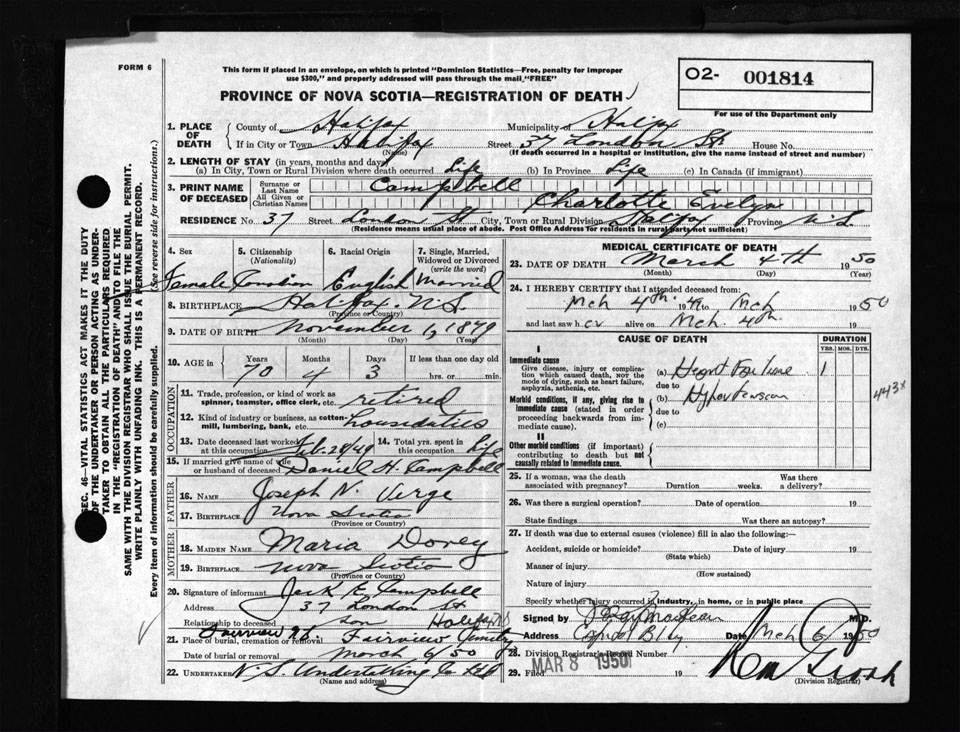 FORM 6
This form if placed in an envelope, on which is printed "Dominion Statistics—Free, penalty for improper
use $300," and properly addressed will pass through the mail "FREE"
O2- 001814
For use of the Department only
PROVINCE OF NOVA SCOTIA—REGISTRATION OF DEATH
1. PLACE OF DEATH { County of Halifax Municipality of Halifax
If in City or Town Halifax (Name) Street 37 London St House No.
(If death occurred in a hospital or institution, give the name instead of street and number)
2. LENGTH OF STAY (in years, months and days)
(a) In City, Town or Rural Division where death occurred Life (b) In Province Life (c) In Canada (if immigrant)
3. PRINT NAME OF DECEASED { Surname or Last Name Campbell
All Given or Christian Names Charlotte Evelyn
RESIDENCE No. 37 Street London St City, Town or Rural Division Halifax Province N.S.
(Residence means usual place of abode. Post Office Address for residents in rural parts not sufficient)
4. Sex Female
5. Citizenship (Nationality)
6. Racial Origin English
7. Single, Married, Widowed or Divorced (write the word) Married
8. BIRTHPLACE Halifax N.S.
(Province or Country)
9. DATE OF BIRTH November 1, 1879
(Month) (Day) (Year)
10. AGE in { Years 70 Months 4 Days 3 If less than one day old hrs. or min.
OCCUPATION
11. Trade, profession, or kind of work as spinner, teamster, office clerk, etc. retired
12. Kind of industry or business, as cotton-mill, lumbering, bank, etc. housduties
13. Date deceased last worked at this occupation Feb. 28/49 14. Total yrs. spent in this occupation Life
15. If married give name of wife or husband of deceased Daniel H. Campbell
FATHER
16. NAME Joseph N. Verge
17. BIRTHPLACE Nova Scotia
(Province or Country)
MOTHER
18. MAIDEN NAME Maria Dorey
19. BIRTHPLACE Nova Scotia
(Province or Country)
20. Signature of informant Jack E. Campbell
Address 37 London St
Relationship to deceased son Halifax NS
21. Place of burial, cremation or removal Fairview Cemetery
Fairview
Date of burial or removal March 6/50
22. UNDERTAKER N.S. Undertaking Co Ltd
(Name and address)
MEDICAL CERTIFICATE OF DEATH
23. DATE OF DEATH March 4th 1950
(Month) (Day) (Year)
24. I HEREBY CERTIFY that I attended deceased from:
Mch 4th 19 to Mch 1950
and last saw her alive on Mch. 4th 19
CAUSE OF DEATH
DURATION
YRS. MOS. DYS.
I
Immediate cause
Give disease, injury or complication which caused death, not the mode of dying, such as heart failure, asphyxia, asthenia, etc.
(a) Heart Failure 1
due to
Morbid conditions, if any, giving rise to immediate cause (stated in order proceeding backwards from immediate cause).
(b) Hypertension
due to
(c)
443x
II
Other morbid conditions (if important) contributing to death but not causally related to immediate cause.
25. If a woman, was the death associated with pregnancy? Duration weeks. Was there a delivery?
26. Was there a surgical operation? Date of operation 19
State findings Was there an autopsy?
27. If death was due to external causes (violence) fill in also the following:—
Accident, suicide or homicide? Date of injury 19
(State which)
Manner of injury
(How sustained)
Nature of injury
Specify whether injury occurred in industry, in home, or in public place
Signed by M.D.
Address Date Mch 6 1950
28. Division Registrar's Record Number
29. Filed MAR 8 1950 19
(Division Registrar)
SEC. 46—VITAL STATISTICS ACT MAKES IT THE DUTY
OF THE UNDERTAKER OR PERSON ACTING AS UNDER-
TAKER TO OBTAIN ALL THE PARTICULARS REQUIRED
IN THE "REGISTRATION OF DEATH" AND TO FILE THE
SAME WITH THE DIVISION REGISTRAR WHO SHALL ISSUE THE BURIAL PERMIT.
WRITE PLAINLY WITH UNFADING INK. THIS IS A PERMANENT RECORD.
Every item of information should be carefully supplied. (See reverse side for instructions.)